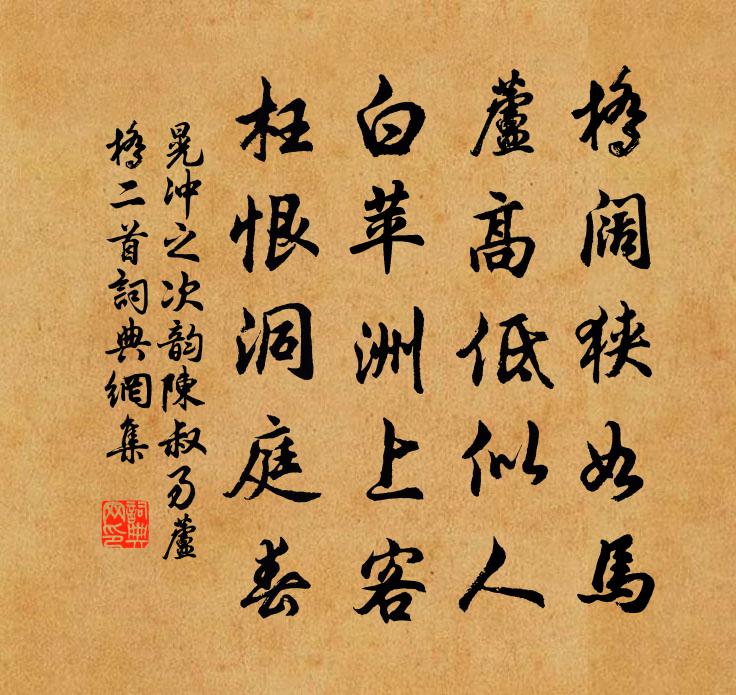 橋闊狹如馬
蘆高低似人
白苹洲上客
枉恨洞庭春
晁冲之次韵陳叔易蘆
橋二首詞典網集
詞典
网印